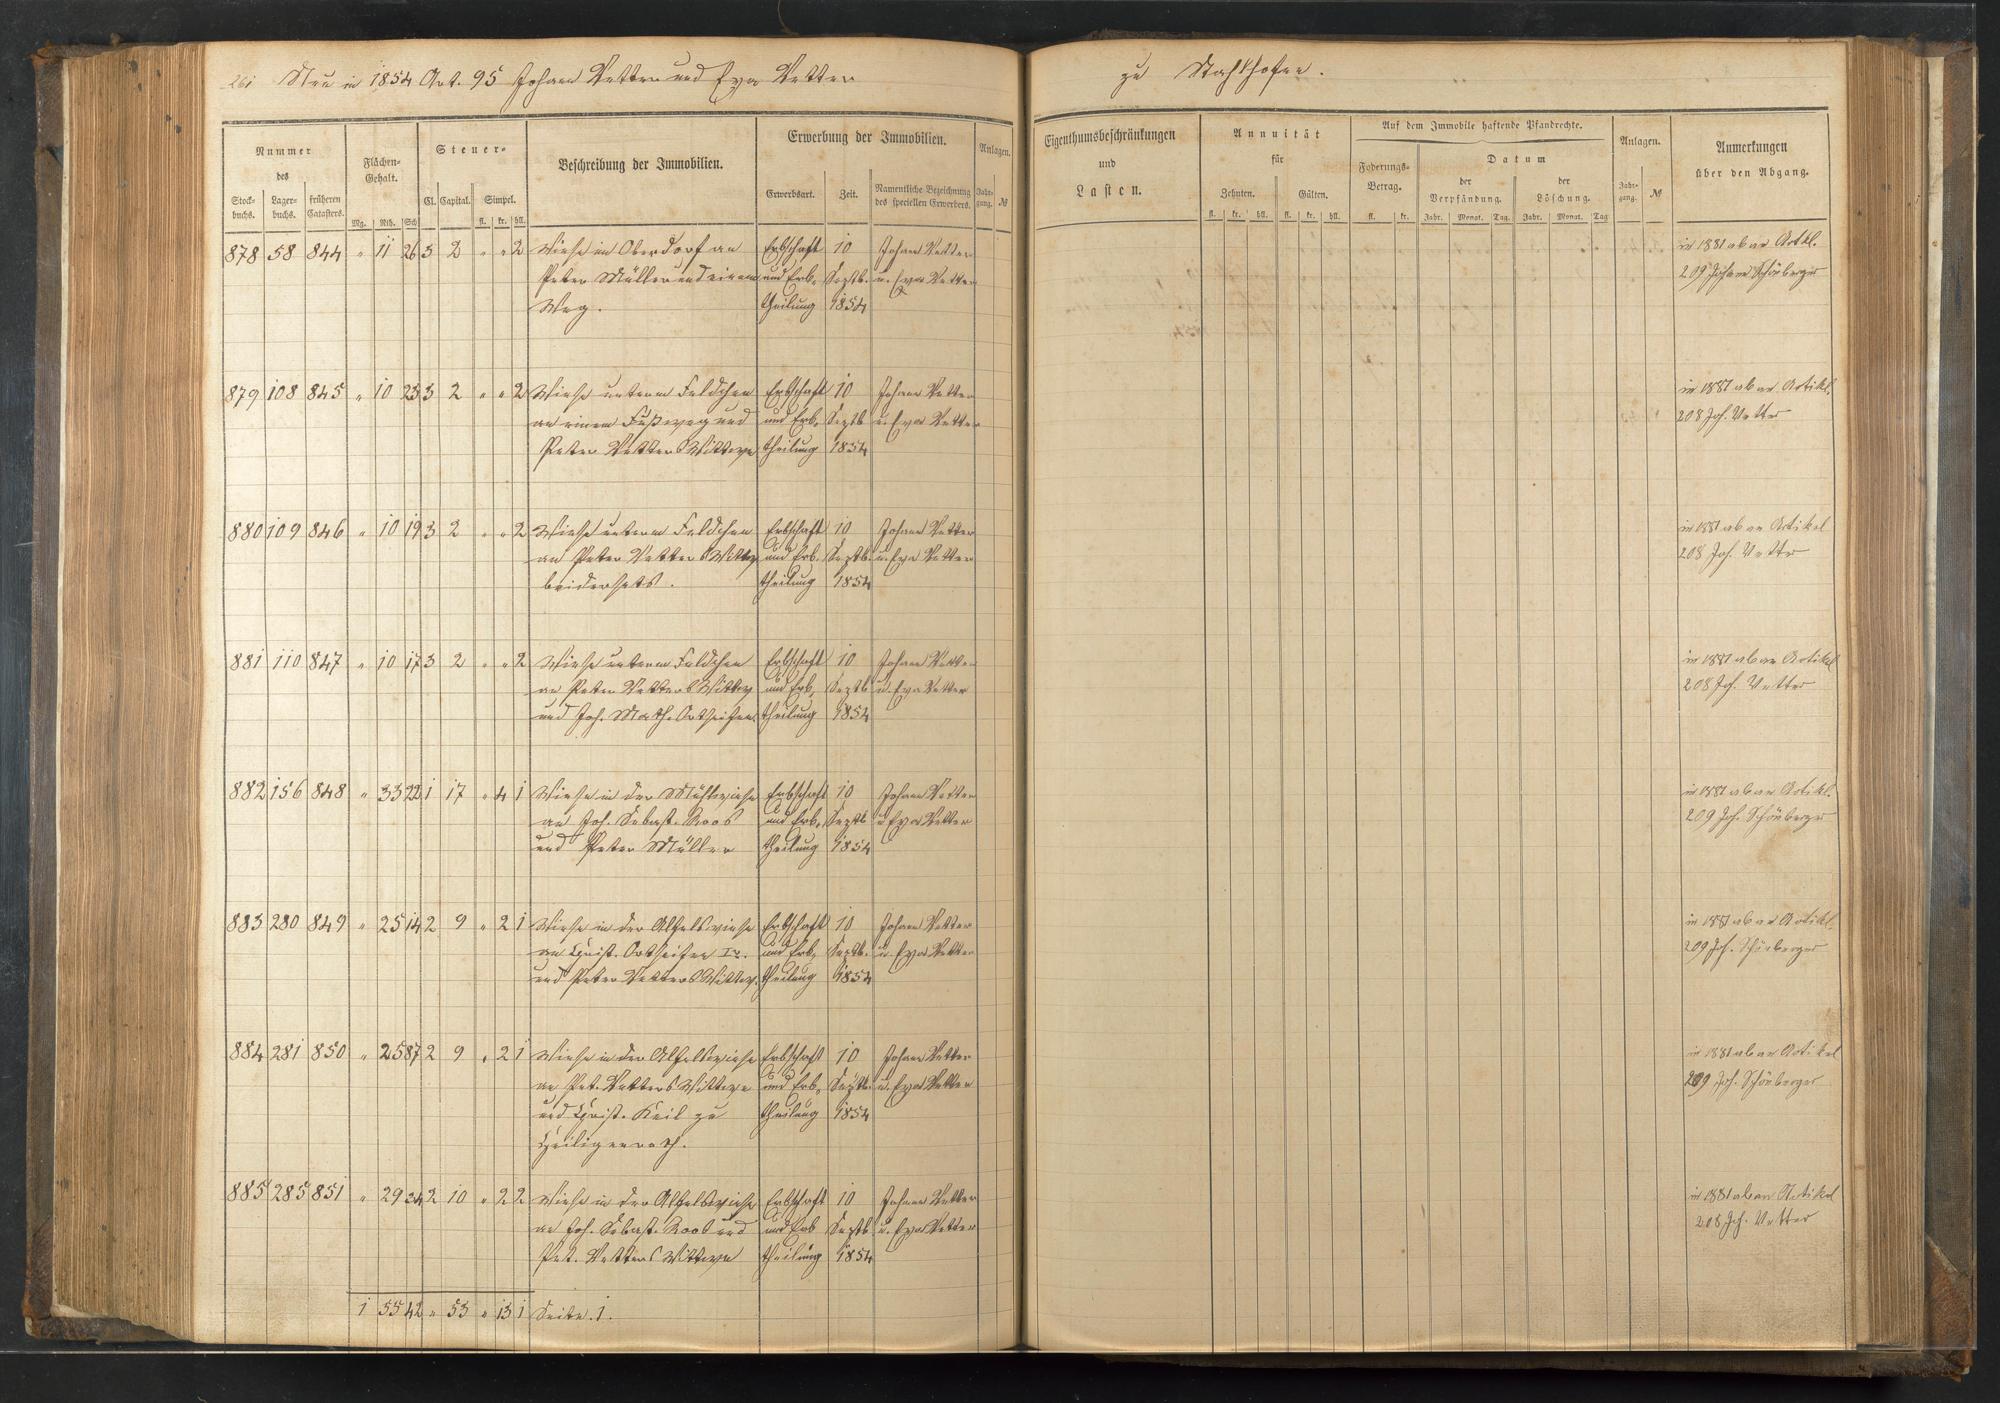 261 Neu in 1854 Art. 95 Johann Vetter und Eva Vetter
zu Stahlhofen.
Nummer
des
Stock-
buchs.
Lager-
buchs.
früheren
Catasters.
Flächen-
Gehalt.
Mg. Rth. Sch
Steuer-
Cl. Capital. Simpel.
fl. kr. hll.
Beschreibung der Immobilien.
Erwerbung der Immobilien.
Erwerbsart. Zeit. Namentliche Bezeichnung
des speciellen Erwerbers.
Anlagen.
Jahr-
gang. №
Eigenthumsbeschränkungen
und
Lasten.
Annuität
für
Zehnten. Gülten.
fl. kr. hll. fl. kr. hll.
Auf dem Immobile haftende Pfandrechte.
Foderungs-
Betrag.
fl. kr.
Datum
der
Verpfändung.
Jahr. Monat. Tag.
der
Löschung.
Jahr. Monat. Tag
Anlagen.
Jahr-
gang. №
Anmerkungen
über den Abgang.
878 58 844 " 11 26 3 2 " " 2 Wiese im Oberdorf an Erbschaft 10 Johann Vetter in 1881 ab an Artkl.
Peter Müller und einem und Erb- Septb. u. Eva Vetter 209 Johann Schönberger
Weg. theilung 1854
879 108 845 " 10 23 3 2 " " 2 Wiese unterm Feldchen Erbschaft 10 Johann Vetter in 1881 ab an Artikl.
an einem Fußweg und und Erb- Septb u. Eva Vetter 208 Joh. Vetter
Peter Vetters Wittwe theilung 1854
880 109 846 " 10 19 3 2 " " 2 Wiese unterm Feldchen Erbschaft 10 Johann Vetter in 1881 ab an Artikel
an Peter Vetters Wittw und Erb- Septb. u. Eva Vetter 208 Joh. Vetter
beiderseits. theilung 1854
881 110 847 " 10 17 3 2 " " 2 Wiese unterm Feldchen Erbschaft 10 Johann Vetter in 1881 ab an Artikel
an Peter Vetters Wittw und Erb- Septb u. Eva Vetter 208 Joh. Vetter
und Joh. Math. Ortseifen. theilung 1854
882 156 848 " 33 22 1 17 " 4 1 Wiese in der Mühlwiese Erbschaft 10 Johann Vetter in 1881 ab an Artikl.
an Joh. Sebast. Roos und Erb- Septb u Eva Vetter 209 Joh. Schönberger
und Peter Müller theilung 1854
883 280 849 " 25 14 2 9 " 2 1 Wiese in der Alfelswiese Erbschaft 10 Johann Vetter in 1881 ab an Artikl.
an Christ. Ortseifen Ir. und Erb- Septb. u. Eva Vetter 209 Joh. Schönberger
und Peter Vetters Wittw. theilung 1854
884 281 850 " 25 87 2 9 " 2 1 Wiese in der Alfelswiese Erbschaft 10 Johann Vetter in 1881 ab an Artikel
an Pet. Vetters Wittwe und Erb- Septb. u. Eva Vetter 209 Joh. Schönberger
und Christ. Keil zu theilung 1854
Heiligenroth.
885 285 851 " 29 34 2 10 " 2 2 Wiese in der Alfelswiese Erbschaft 10 Johann Vetter in 1881 ab an Artikel
an Joh. Sebast. Roos und und Erb Septb u. Eva Vetter 208 Joh. Vetter
Pet. Vetters Wittwe theilung 1854
1 55 42 " 53 " 13 1 Seite. 1.